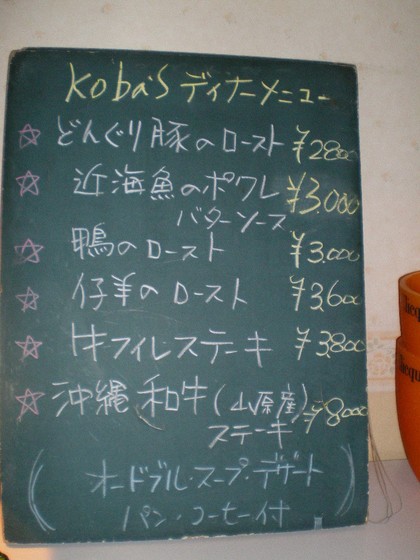 Koba's ディナーメニュー
☆ どんぐり豚のロースト ¥2800
☆ 近海魚のポワレ ¥3.000
バターソース
☆ 鴨のロースト ¥3.000
☆ 仔羊のロースト ¥3,600
☆ 牛フィレステーキ ¥3,800
☆ 沖縄和牛(山原産) ¥8000
ステーキ
(オードブル・スープ・デザート
パン・コーヒー付)